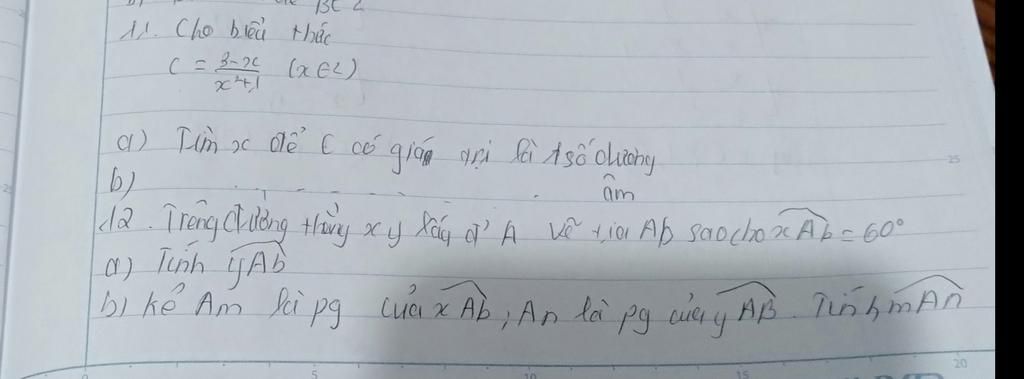 BC
11. Cho biểu thức
C = \frac{3-x}{x^2+1} (x ∈ Z)
a) Tìm x để C có giá trị là 1 số dương
b) - - - - - âm
12. Trên đường thẳng x y lấy đ' A vẽ tia Ab sao cho \widehat{xAb} = 60°
a) Tính \widehat{yAb}
b) Kẻ Am là pg của \widehat{xAb}, An là pg của \widehat{yAB}. Tính \widehat{mAn}
5 10 15 20
25